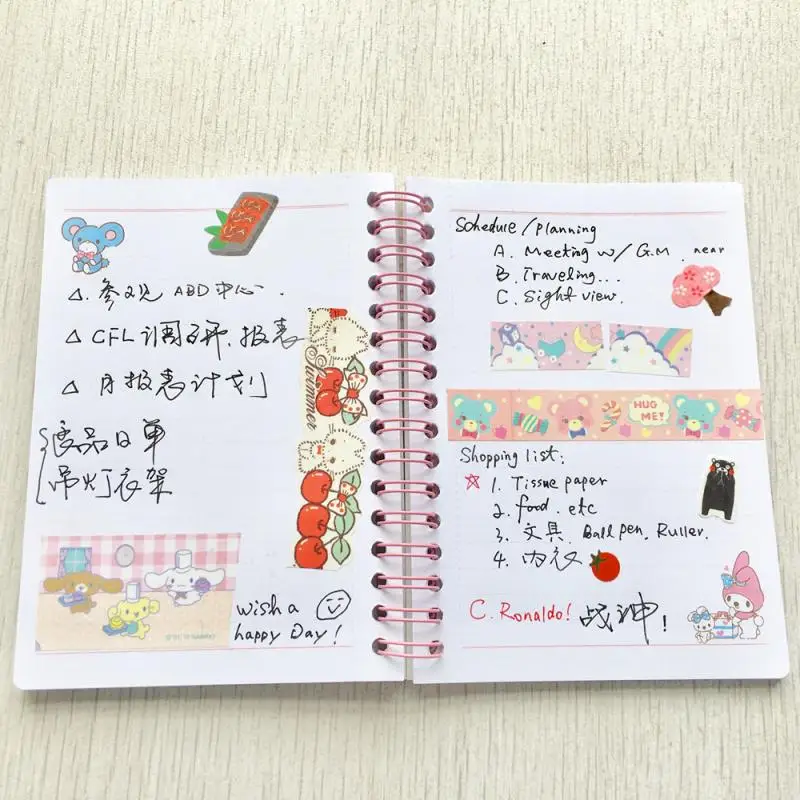 △. 参观 ABD中心.
△ CFL 调研.报表
△ 月报表计划
良品日单
吊灯衣架
Summer
wish a
happy Day!
Schedule/planning
A. Meeting w/ G.M. near
B. Traveling...
C. Sight view.
HUG
ME!
Shopping list:
☆ 1. Tissue paper
2. food. etc
3. 文具. Ball pen. Ruller.
4. 内衣
C. Ronaldo! 战神!